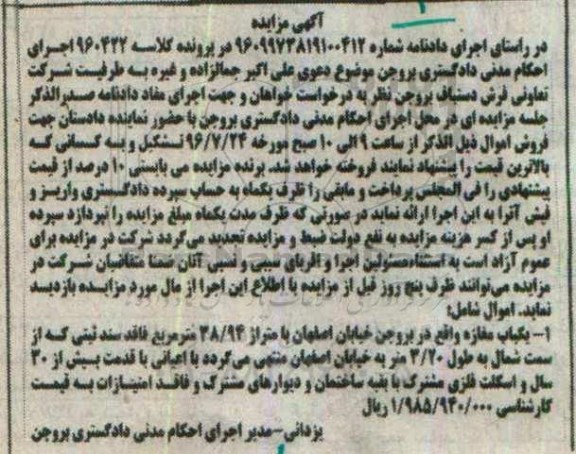 آگهی مزایده
در راستای اجرای دادنامه شماره ۹۶۰۹۹۷۳۸۱۹۱۰۰۴۱۲ در پرونده کلاسه ۹۶۰۴۲۲ اجرای
احکام مدنی دادگستری بروجن موضوع دعوی علی اکبر جمالزاده و غیره به طرفیت شرکت
تعاونی فرش دستباف بروجن نظر به درخواست خواهان و جهت اجرای مفاد دادنامه صدرالذکر
جلسه مزایده ای در محل اجرای احکام مدنی دادگستری بروجن با حضور نماینده دادستان جهت
فروش اموال ذیل الذکر از ساعت ۹ الی ۱۰ صبح مورخه ۹۶/۷/۲۴ تشکیل و به کسانی که
بالاترین قیمت را پیشنهاد نمایند فروخته خواهد شد. برنده مزایده می بایستی ۱۰ درصد از قیمت
پیشنهادی را فی المجلس پرداخت و مابقی را ظرف یکماه به حساب سپرده دادگستری واریز و
فیش آنرا به این اجرا ارائه نماید در صورتی که ظرف مدت یکماه مبلغ مزایده را نپردازد سپرده
او پس از کسر هزینه مزایده به نفع دولت ضبط و مزایده تجدید می گردد شرکت در مزایده برای
عموم آزاد است به استثناء مسئولین اجرا و اقربای سببی و نسبی آنان ضمنا متقاضیان شرکت در
مزایده می‌توانند ظرف پنج روز قبل از مزایده با اطلاع این اجرا از مال مورد مزایده بازدید
نماید. اموال شامل:
۱- یکباب مغازه واقع در بروجن خیابان اصفهان با متراژ ۳۸/۹۴ مترمربع فاقد سند ثبتی که از
سمت شمال به طول ۳/۲۰ متر به خیابان اصفهان منتهی می‌گردد با اعیانی با قدمت بیش از ۳۰
سال و اسکلت فلزی مشترک با بقیه ساختمان و دیوارهای مشترک و فاقد امتیازات به قیمت
کارشناسی ۱/۹۸۵/۹۴۰/۰۰۰ ریال
یزدانی-مدیر اجرای احکام مدنی دادگستری بروجن